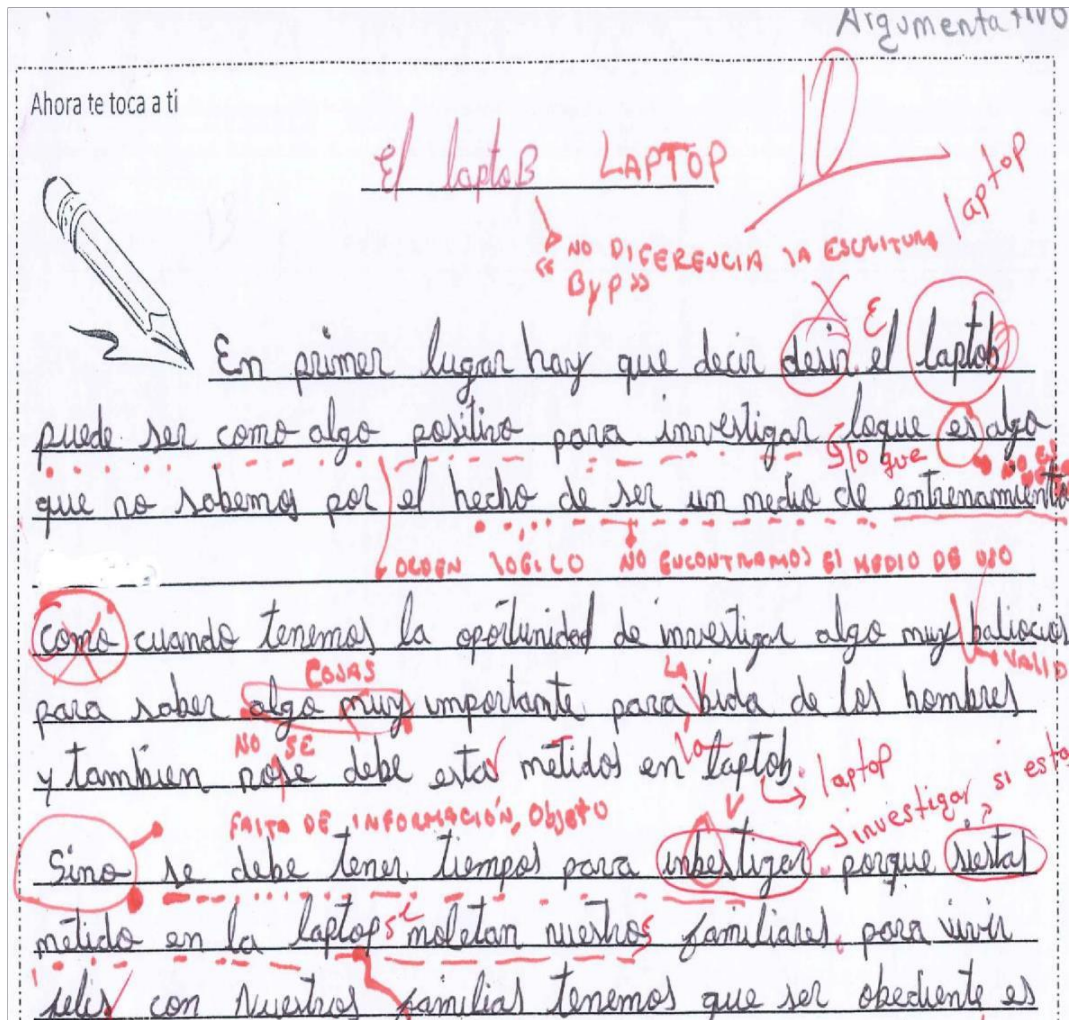 Argumentativo
Ahora te toca a ti
El laptoB LAPTOP 10
NO DIFERENCIA LA ESCRITURA laptop
« B y P »
En primer lugar hay que decir desir el laptob
E
puede ser como algo positivo para investigar loque es algo
lo que NO ES
que no sabemos por el hecho de ser un medio de entrenamiento
ORDEN LOGICO NO ENCONTRAMOS El MEDIO DE USO
como cuando tenemos la oportunidad de investigar algo muy baliocios
COSAS LA VALIO
para saber algo muy importante para bida de los hombres
NO SE
y tambien nose debe esta metidos en laptob.
la laptop si esta
FALTA DE INFORMACIÓN, Objeto investigar
Sino se debe tener tiempos para inbestigar porque siestas
metido en la laptop moletan nuestros familiares para vivir
se
felis con Nuestros familias tenemos que ser obediente es